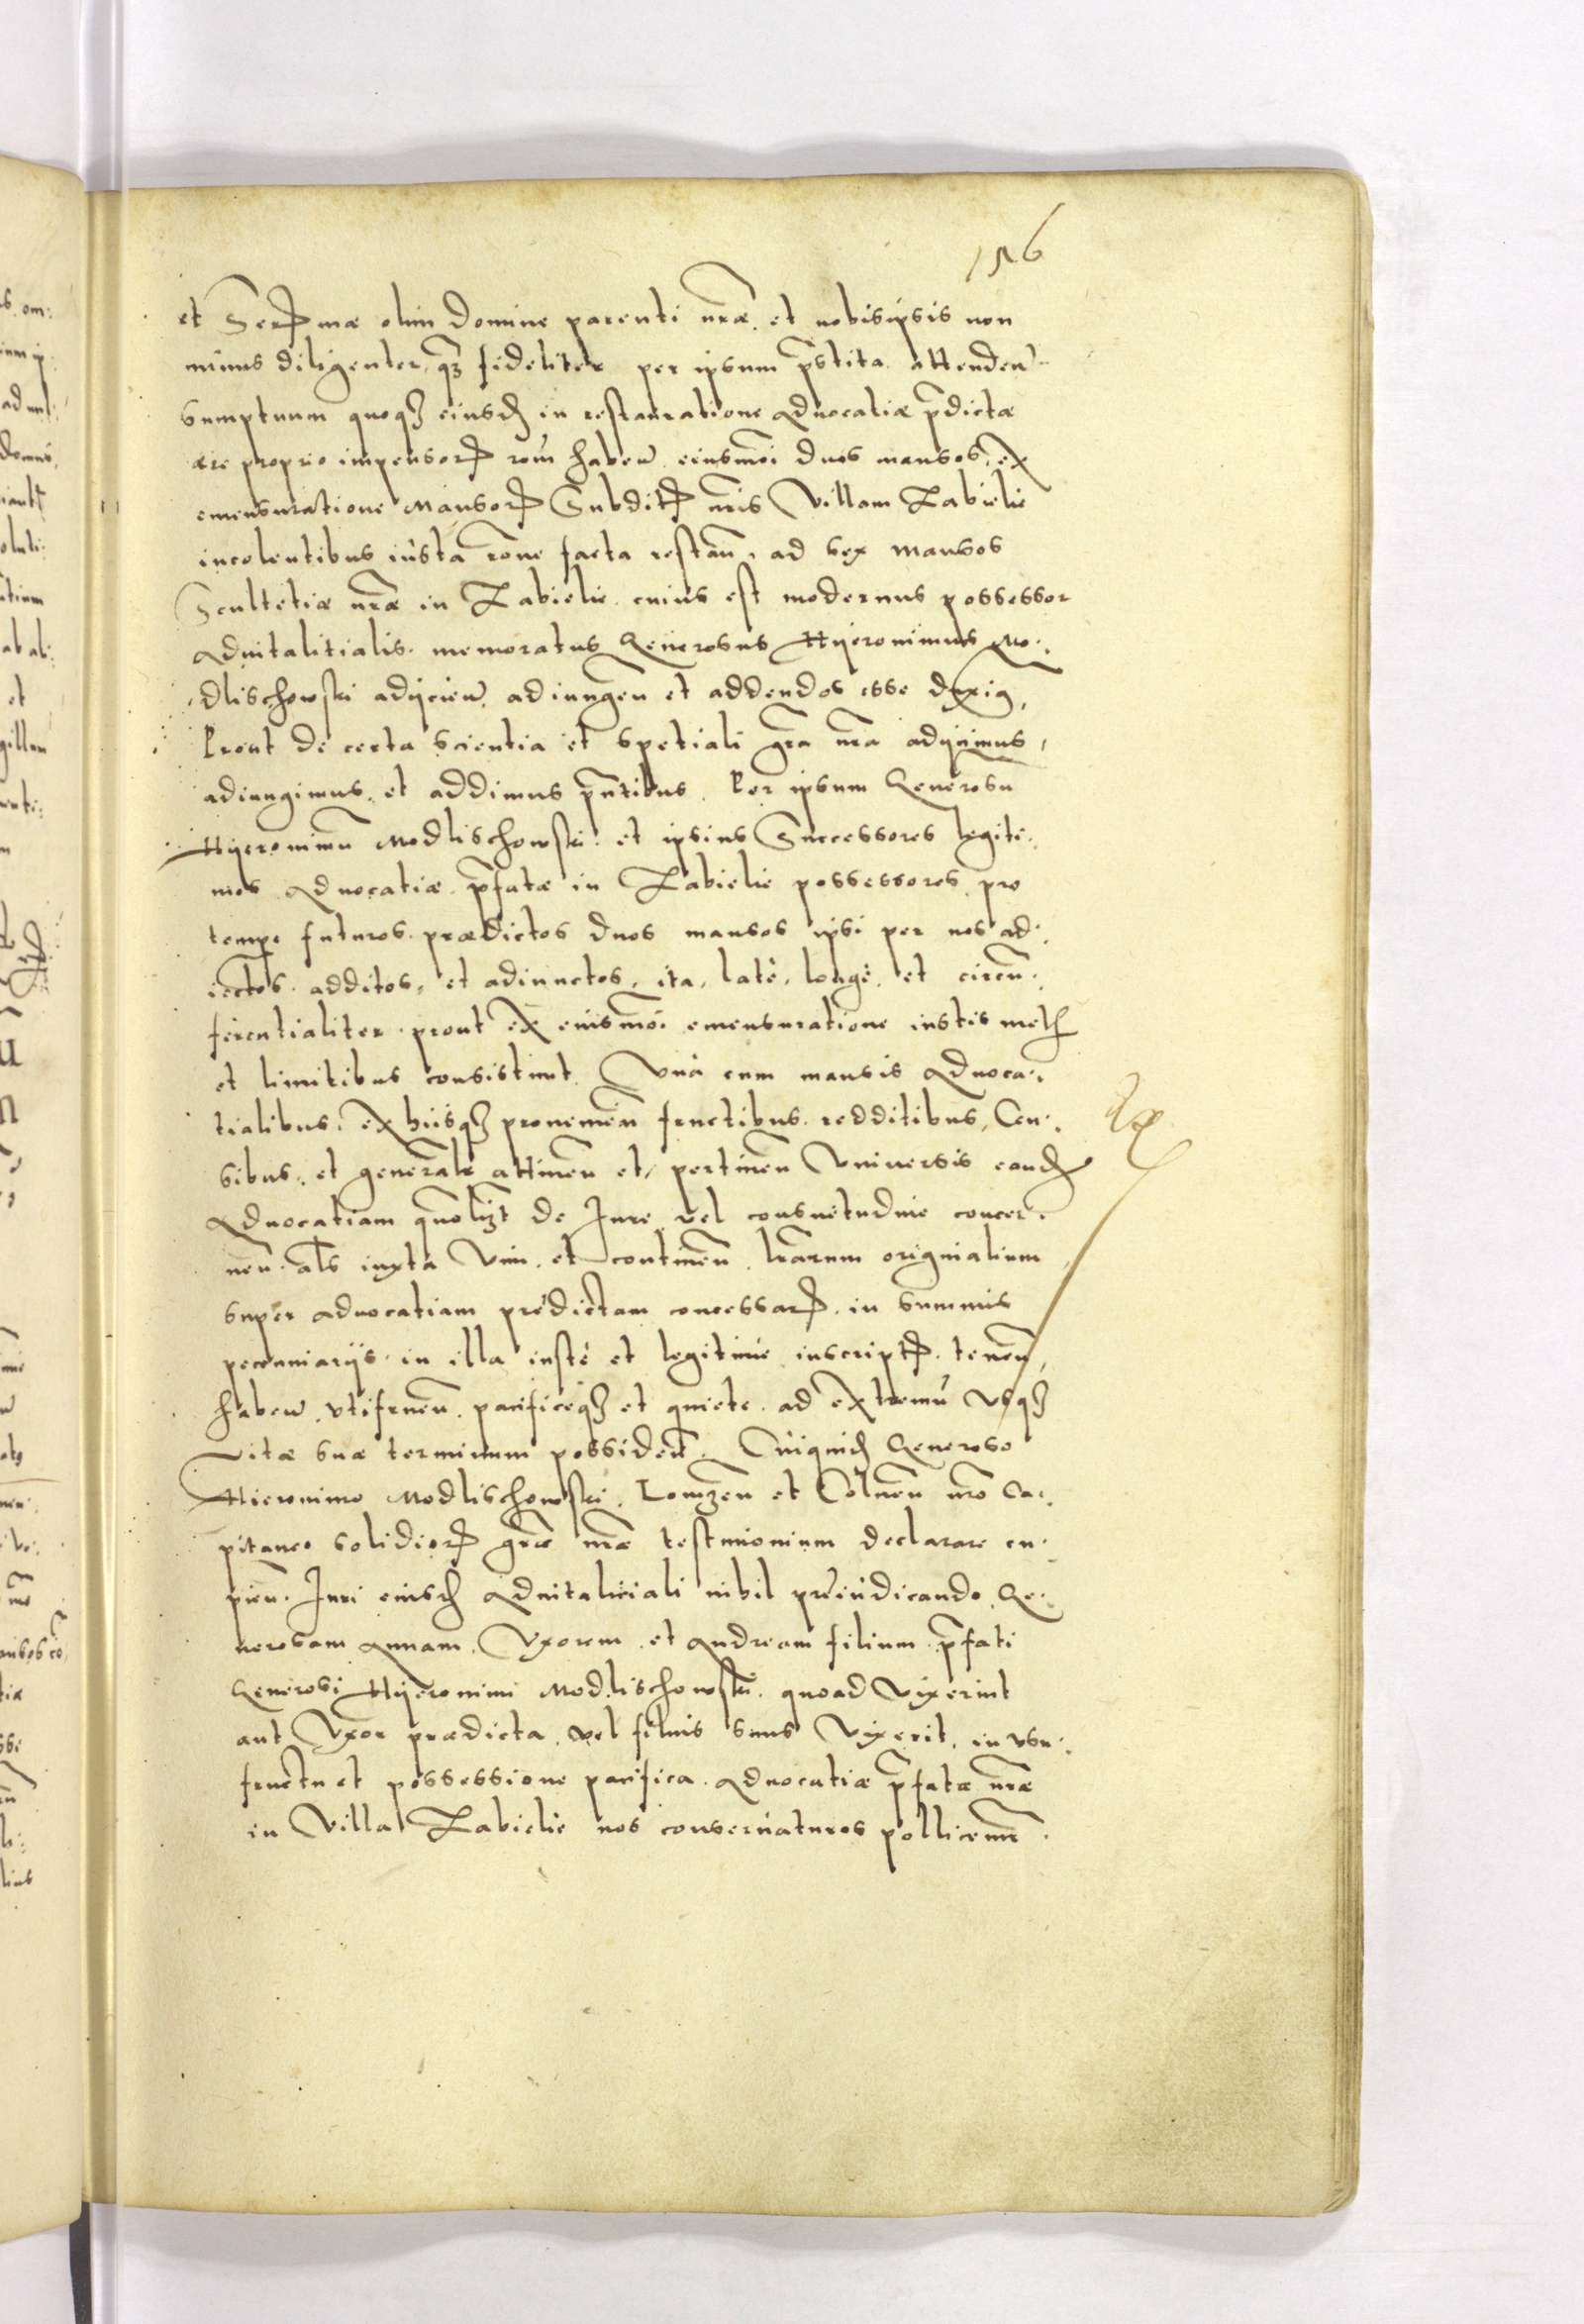 156
et Ser̃mæ olim Domine parenti nr̃æ et nobisipsis non
minus diligenter, qʒ fideliter per ipsum p̃stita attenden̄
sumptuum quoqʒ eiusd̃ in restauratione Aduocatiæ p̃dictæ
ære proprio impensorꝝ rõm haben̄ eiusmõi duos mansos, ex
emensuratione Mansorꝝ Subditꝝ nr̃is Villam Zabielie
incolentibus iusta rõne facta restan̄, ad sex mansos
Scultetiæ nr̃æ in Zabielie cuius est modernus possessor
Aduitalitialis memoratus Generosus Hyieronimus Mo:
dlischowski adijcien̄, adiungen̄ et addendos esse duxim̃,
Prout de certa scientia et spetiali gr̃a nr̃a adijcimus,
adiungimus, et addimus pñtibus. Per ipsum Generosũ
Hyieronimũ Modlischowski et ipsius Successores legiti:
mos Aduocatiæ p̃fatæ in Zabielie possessores pro
tempe futuros prædictos duos mansos ipsi per nos ad:
iectos additos, et adiunctos, ita, latè, longè, et circũ:
ferentialiter prout ex eiusmõi emensuratione iustis met̃
et limitibus consistunt. Vnà cum mansis Aduoca:
tialibus, ex hiisqʒ prouenieñ fructibus redditibus, Cen:
sibus, et generalr̃ attineñ et pertineñ Vniuersis eand̃
Aduocatiam quõlibʒt de Iure vel consuetudine concer:
neñ. al̃s iuxta Vim et contineñ lr̃arum originalium
super aduocatiam predictam concessarꝝ in summis
pecuniarijs in illa iustè et legitimè inscriptꝝ teneñ,
haben̄ vtifrueñ pacificeqʒ et quiete ad extremũ vsqʒ
vitæ suæ terminum possideñ. Cuiquid̃ Generoso
Hieronimo Modlischowski Lomzeñ et Colneñ nr̃o Ca:
pitaneo solidiorꝝ gr̃æ nr̃æ testimonium declarare cu:
pieñ. Iuri eiusd̃ Aduitaliciali nihil preiudicando Ge:
nerosam Annam, Vxorem et Andream filium p̃fati
Generosi Hyieronimi Modlischowski quoad Vixerint
aut Vxor prædicta vel filius suus Vixerit, in vsu:
fructu et possessione pacifica Aduocatiæ p̃fatæ nr̃æ
in Villa Zabielie nos conseruaturos pollicemr̃.